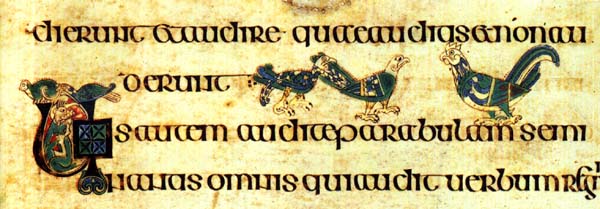 dierunt & audire quae auditis & non au
dierunt
Uos autem audite parabulam semi
nantis omnis qui audit uerbum regni